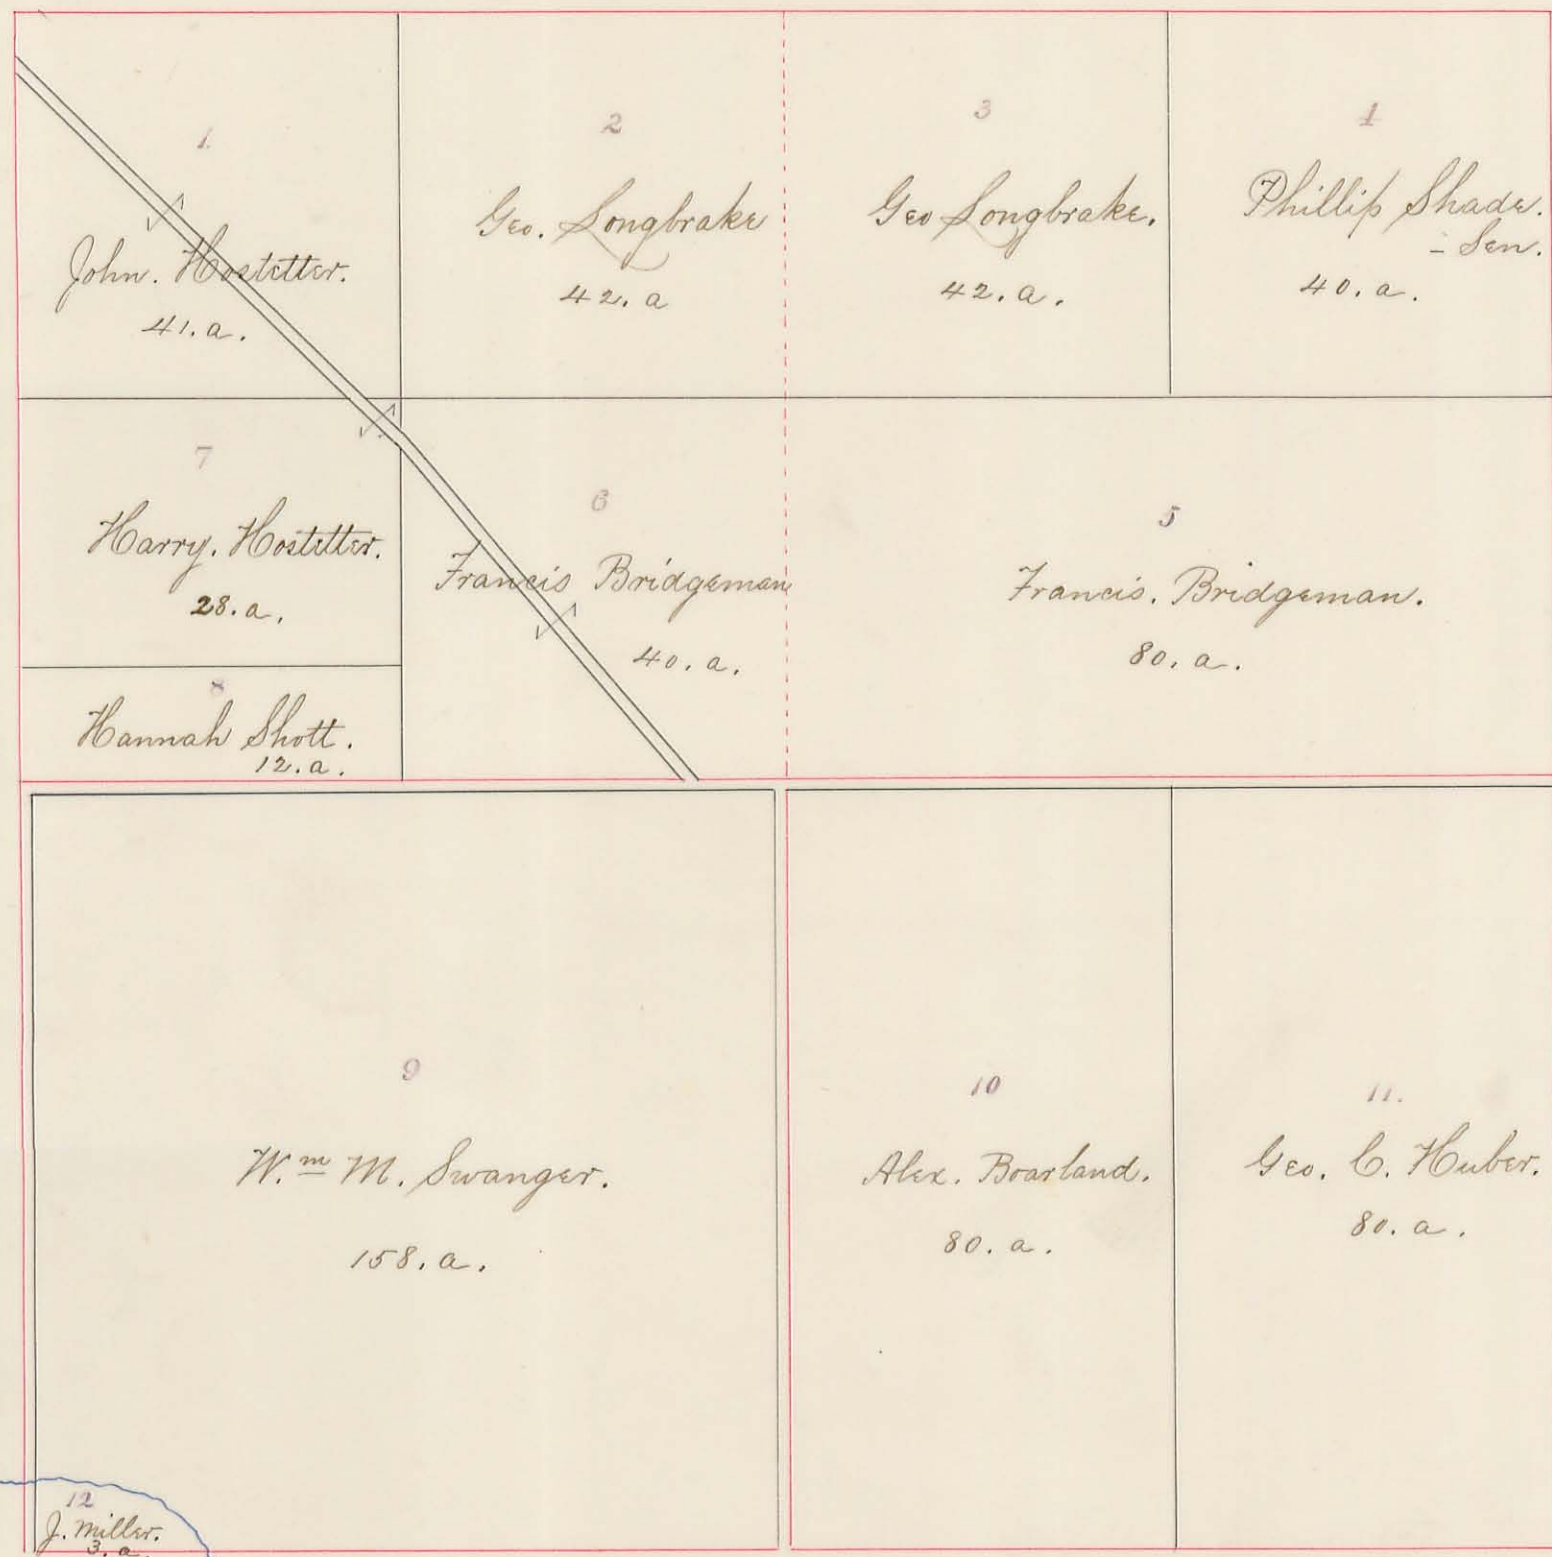 1.
John. Hostetter.
41. a.
2
Geo. Longbrake
42. a
3
Geo Longbrake.
42. a.
4
Phillip Shade.
- Sen.
40. a.
7
Harry. Hostetter.
28. a.
6
Francis Bridgeman
40. a.
5
Francis. Bridgeman.
80. a.
8
Hannah Shott.
12. a.
9
W.m M. Swanger.
158. a.
10
Alex. Boarland.
80. a.
11.
Geo. C. Huber.
80. a.
12
J. Miller.
3. a.